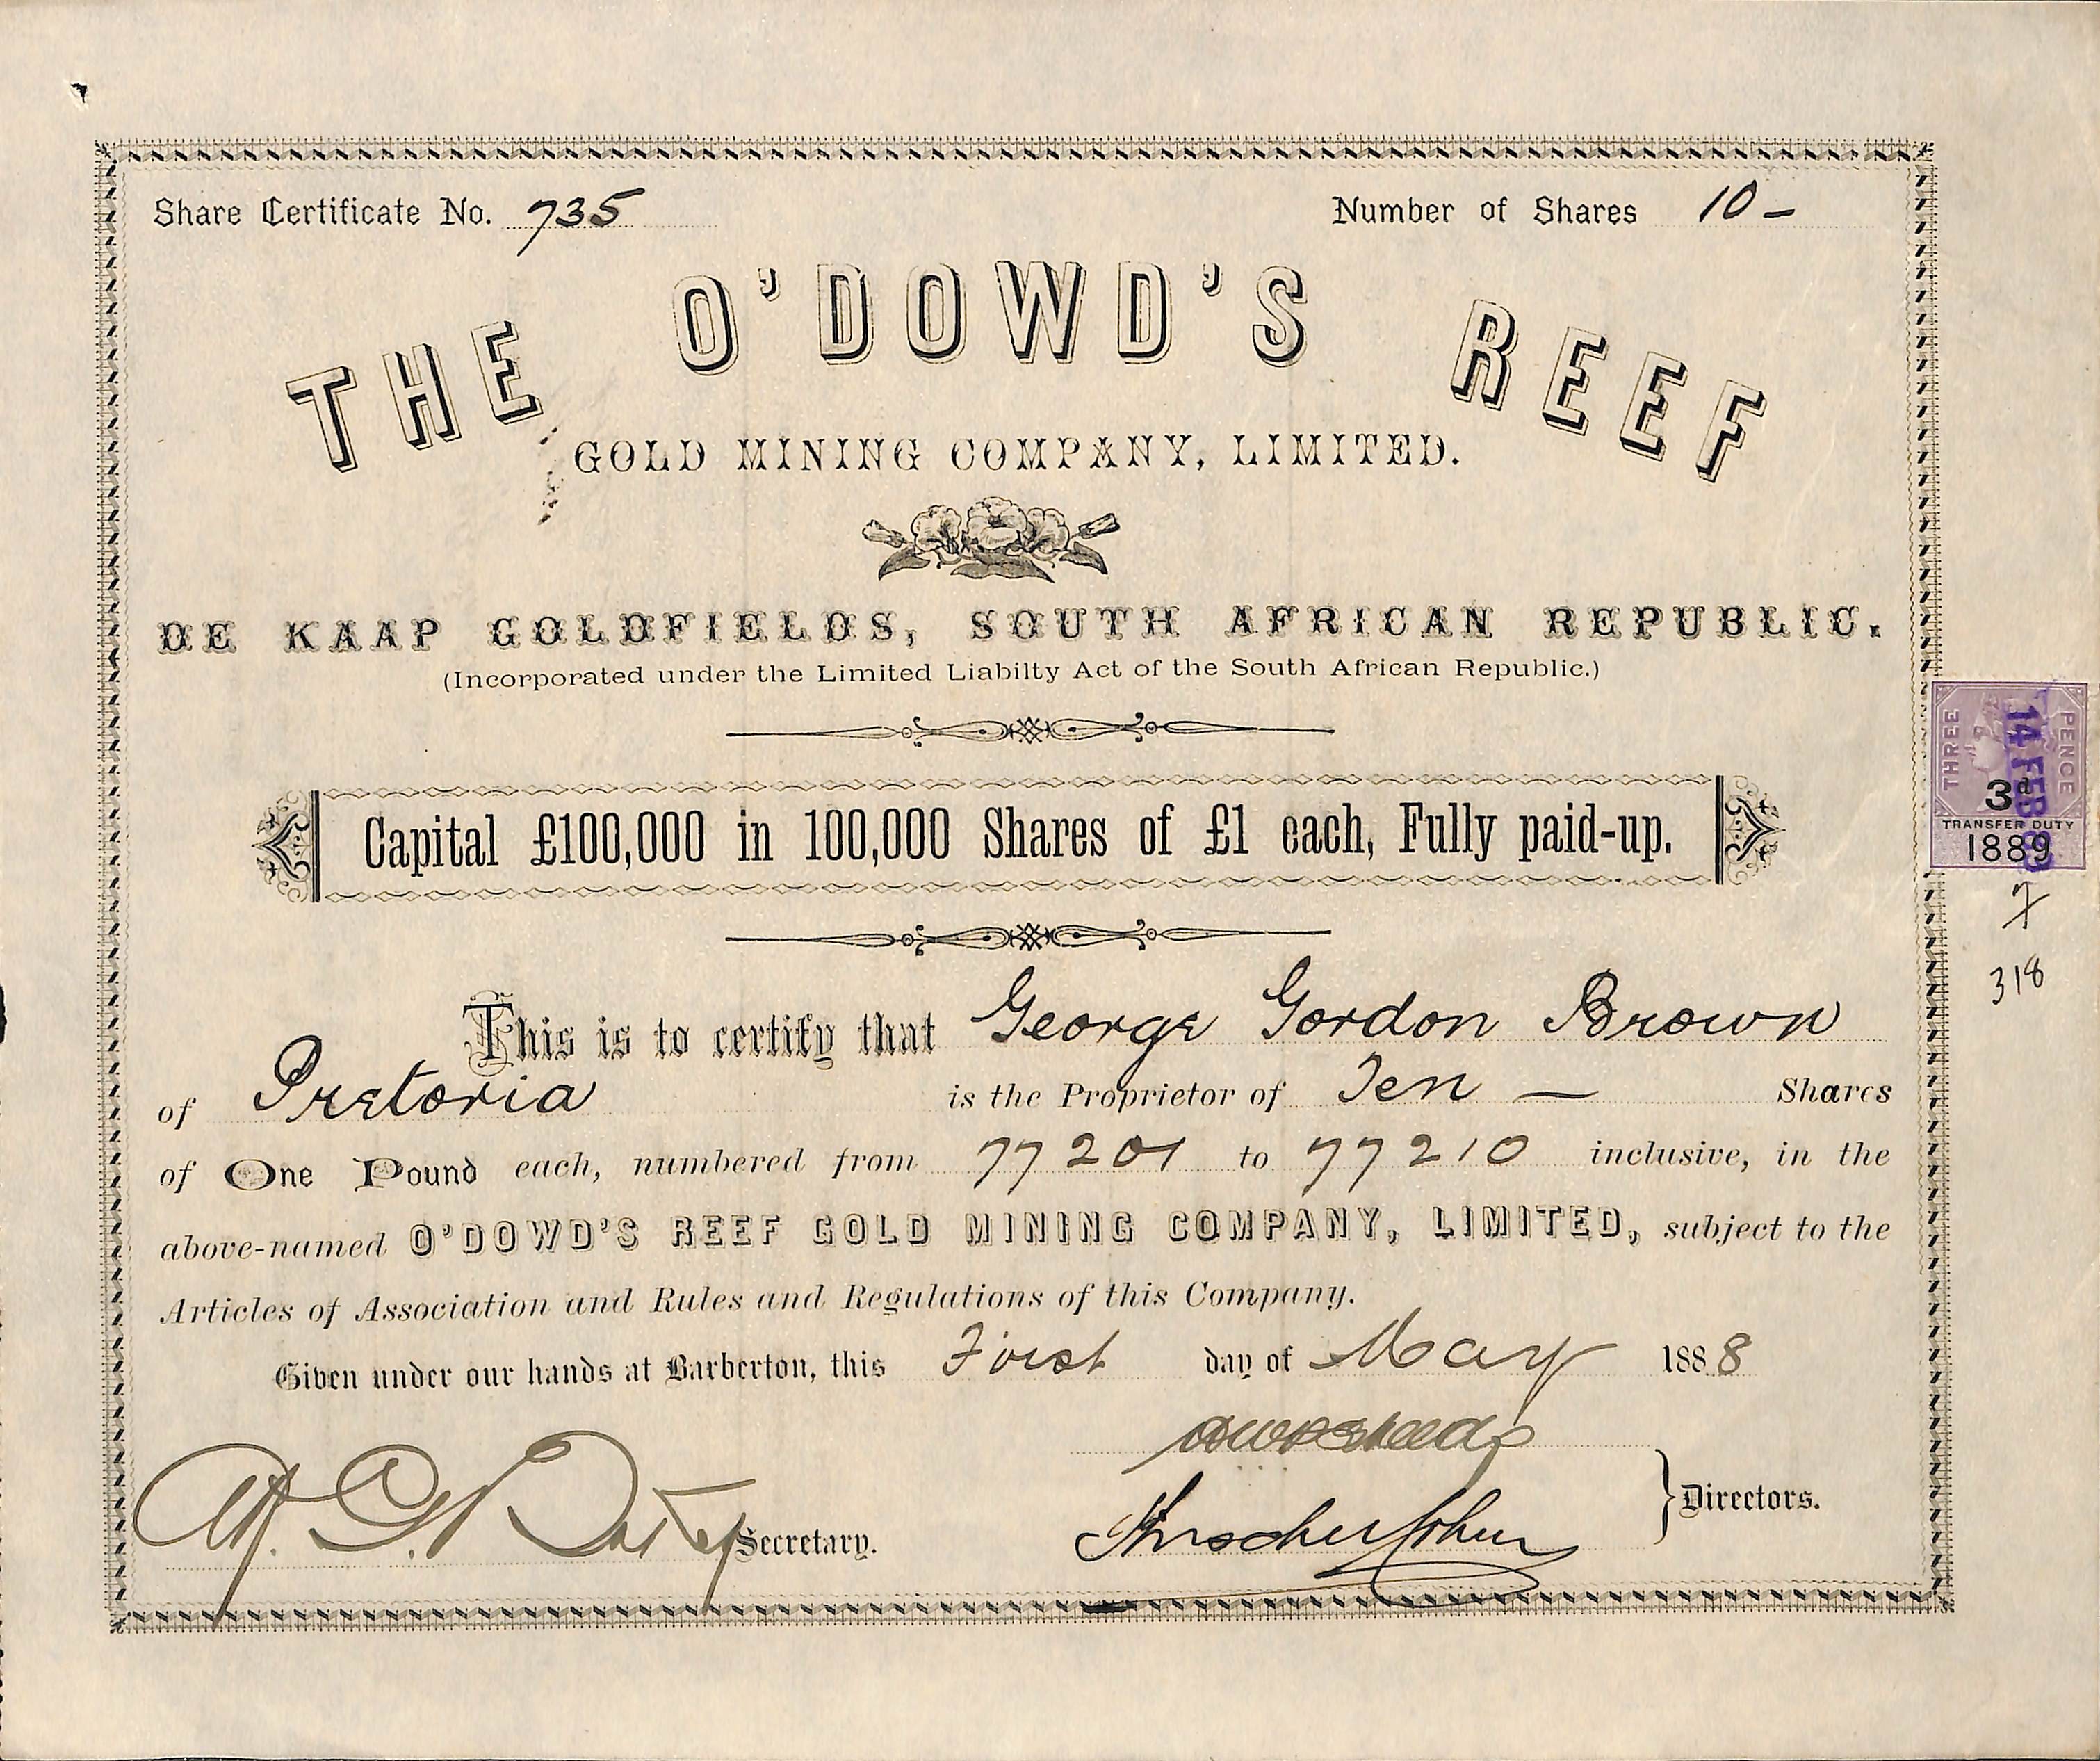 Share Certificate No. 735
Number of Shares 10 –
THE O'DOWD'S REEF
GOLD MINING COMPANY, LIMITED.
DE KAAP GOLDFIELDS, SOUTH AFRICAN REPUBLIC.
(Incorporated under the Limited Liabilty Act of the South African Republic.)
THREE PENCE
14 FEB 89
3d
TRANSFER DUTY
1889
Capital £100,000 in 100,000 Shares of £1 each, Fully paid-up.
7
318
This is to certify that George Gordon Brown
of Pretoria is the Proprietor of Ten — Shares
of One Pound each, numbered from 77201 to 77210 inclusive, in the
above-named O'DOWD'S REEF GOLD MINING COMPANY, LIMITED, subject to the
Articles of Association and Rules and Regulations of this Company.
Given under our hands at Barberton, this First day of May 1888
Secretary.
Directors.